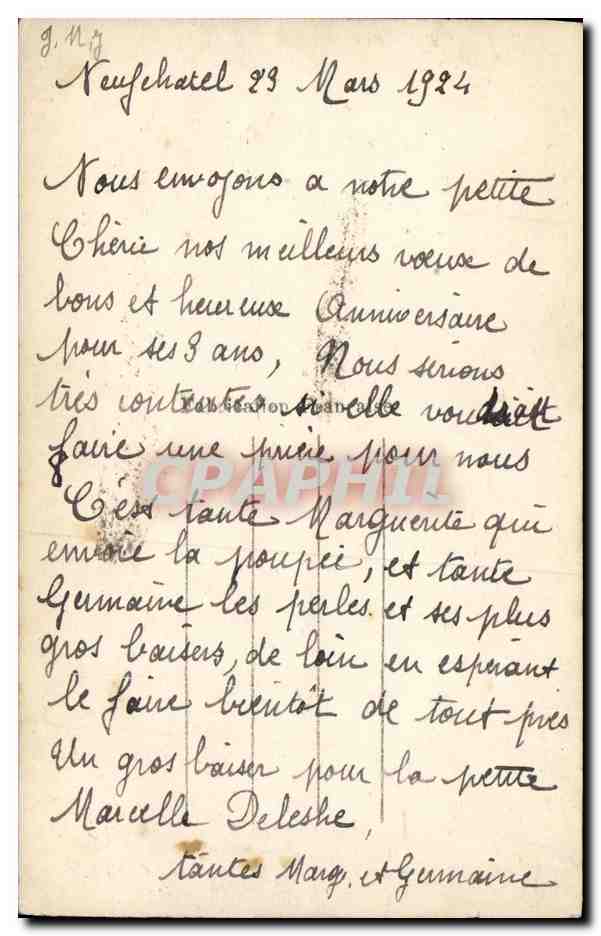 J. M. J
Neufchatel 23 Mars 1924
Nous envoyons a notre petite
Chérie nos meilleurs vœux de
bons et heureux Anniversaire
pour ses 3 ans, Nous serions
très contentes si elle voudrait
Fabrication Française
faire une prière pour nous
CPAPHIL
C'est tante Marguerite qui
envoie la poupée, et tante
Germaine les perles et ses plus
gros baisers, de loin en espérant
le faire bientôt de tout près
Un gros baiser pour la petite
Marcelle Deleshe,
tantes Marg. et Germaine